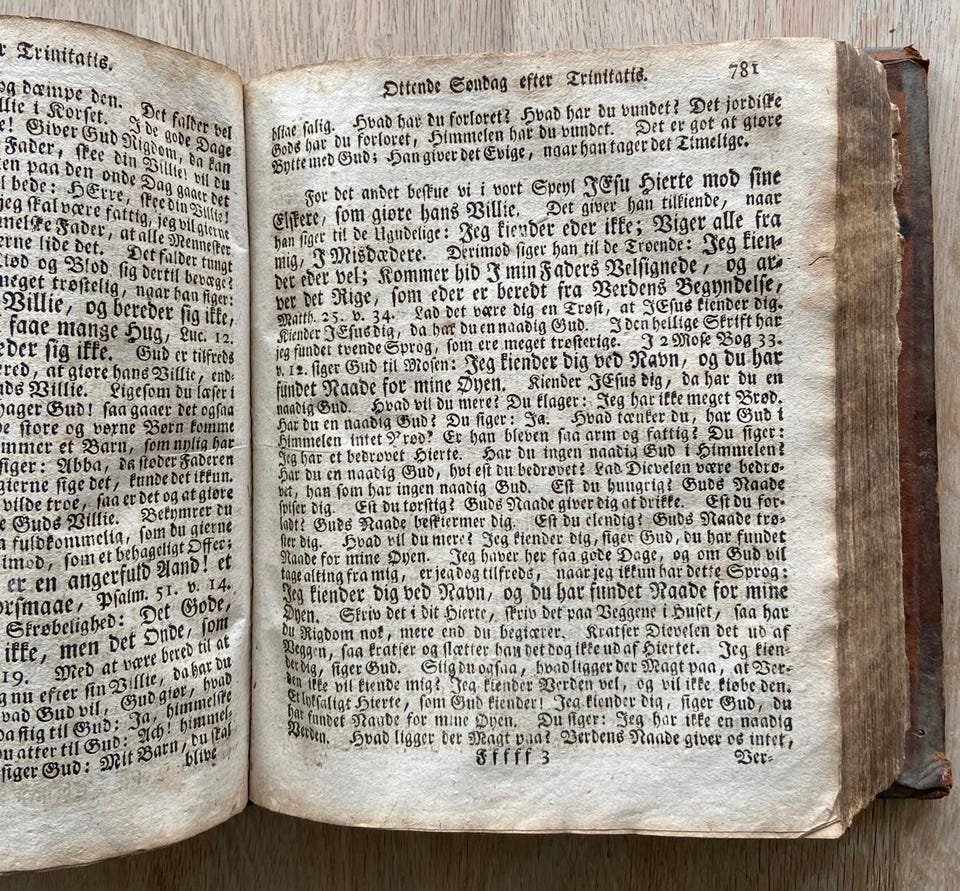 r Trinitatis.
og dæmpe den. Det falder vel
llie i Korset. I de gode Dage
e! Giver Gud Rigdom, da kan
Fader, skee din Villie! vil du
en paa den onde Dag gaaer det
l bede: HErre, skee din Villie!
jeg skal være fattig, jeg vil gierne
melske Fader, at alle Mennesker
erne lide det. Det falder tungt
tød og Blod sig dertil bevæge?
meget trøstelig, naar han siger:
Villie, og bereder sig ikke,
faae mange Hug, Luc. 12.
eder sig ikke. Gud er tilfreds
ered, at giøre hans Villie, end-
ds Villie. Ligesom du læser i
hager Gud! saa gaaer det ogsaa
e store og vorne Børn komme
mmer et Barn, som nylig har
siger: Abba, da støder Faderen
gierne sige det, kunde det ikkun.
vilde troe, saa er det og at giøre
e Guds Villie. Bekymrer du
fuldkommelig, som du gierne
imod, som et behageligt Offer;
er en angerfuld Aand! et
orsmaae, Psalm. 51. v. 14.
Skrøbelighed: Det Gode,
ikke, men det Onde, som
19. Med at være bered til at
g nu efter sin Villie, da har du
vad Gud vil, Gud giør, hvad
da stig til Gud: Ja, himmelske
u atter til Gud: Ach! himmel-
siger Gud: Mit Barn, du skal
blive
Ottende Søndag efter Trinitatis. 781
blive salig. Hvad har du forloret? Hvad har du vundet? Det jordiske
Gods har du forloret, Himmelen har du vundet. Det er got at giøre
Bytte med Gud; Han giver det Evige, naar han tager det Timelige.
For det andet beskue vi i vort Speyl JEsu Hierte mod sine
Elskere, som giøre hans Villie. Det giver han tilkiende, naar
han siger til de Ugudelige: Jeg kiender eder ikke; Viger alle fra
mig, I Misdædere. Derimod siger han til de Troende: Jeg kien-
der eder vel; Kommer hid I min Faders Velsignede, og ar-
ver det Rige, som eder er beredt fra Verdens Begyndelse,
Matth. 25. v. 34. Lad det være dig en Trøst, at JEsus kiender dig.
Kiender JEsus dig, da har du en naadig Gud. I den hellige Skrift har
jeg fundet tvende Sprog, som ere meget trøsterige. I 2 Mose Bog 33.
v. 12. siger Gud til Mosen: Jeg kiender dig ved Navn, og du har
fundet Naade for mine Øyen. Kiender JEsus dig, da har du en
naadig Gud. Hvad vil du mere? Du klager: Jeg har ikke meget Brød.
Har du en naadig Gud? Du siger: Ja. Hvad tænker du, har Gud i
Himmelen intet Brød? Er han bleven saa arm og fattig? Du siger:
Jeg har et bedrøvet Hierte. Har du ingen naadig Gud i Himmelen?
Har du en naadig Gud, hvi est du bedrøvet? Lad Dievelen være bedrø-
vet, han som har ingen naadig Gud. Est du hungrig? Guds Naade
spiser dig. Est du tørstig? Guds Naade giver dig at drikke. Est du for-
ladt? Guds Naade beskiermer dig. Est du elendig? Guds Naade trø-
ster dig. Hvad vil du mere? Jeg kiender dig, siger Gud, du har fundet
Naade for mine Øyen. Jeg haver her faa gode Dage, og om Gud vil
tage alting fra mig, er jeg dog tilfreds, naar jeg ikkun har dette Sprog:
Jeg kiender dig ved Navn, og du har fundet Naade for mine
Øyen. Skriv det i dit Hierte, skriv det paa Veggene i Huset, saa har
du Rigdom nok, mere end du begiærer. Kratser Dievelen det ud af
Veggen, saa kratser og slætter han det dog ikke ud af Hiertet. Jeg kien-
der dig, siger Gud. Siig du ogsaa, hvad ligger der Magt paa, at Ver-
den ikke vil kiende mig? Jeg kiender Verden vel, og vil ikke kiøbe den.
Et lyksaligt Hierte, som Gud kiender! Jeg kiender dig, siger Gud, du
har fundet Naade for mine Øyen. Du siger: Jeg har ikke en naadig
Verden. Hvad ligger der Magt paa? Verdens Naade giver os intet,
Fffff 3 Ver-